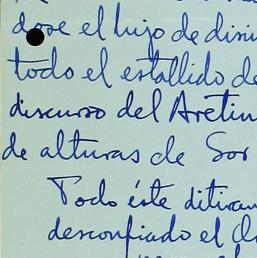 dose el lujo de disi
todo el estallido de
discurso del Aretin
de alturas de Sor
Todo éste ditiram
desconfiado el